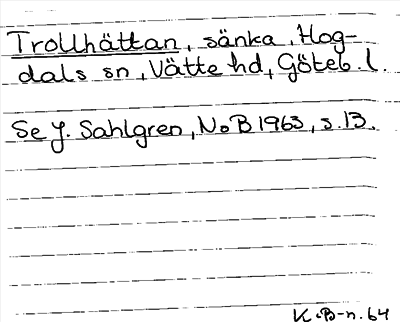 Trollhättan, sänka, Hog-
dals sn, Vätte hd, Göteb. l.
Se J. Sahlgren, NoB 1963, s. 13.
K.B-n. 64